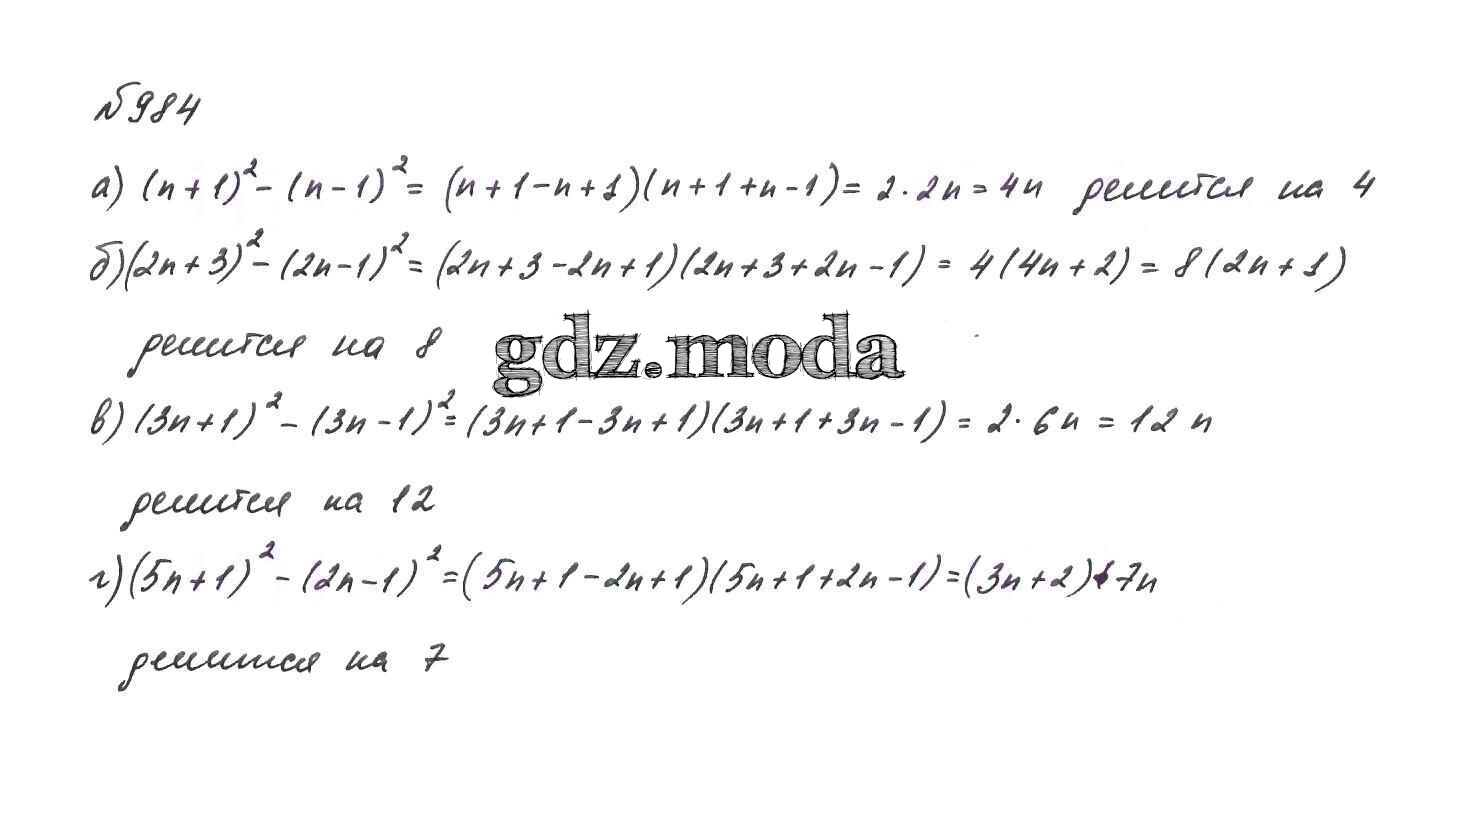 №984
а) (n+1)² - (n-1)² = (n+1-n+1)(n+1+n-1) = 2·2n = 4n делится на 4
б) (2n+3)² - (2n-1)² = (2n+3-2n+1)(2n+3+2n-1) = 4(4n+2) = 8(2n+1)
делится на 8
gdz.moda
в) (3n+1)² - (3n-1)² = (3n+1-3n+1)(3n+1+3n-1) = 2·6n = 12n
делится на 12
г) (5n+1)² - (2n-1)² = (5n+1-2n+1)(5n+1+2n-1) = (3n+2)·7n
делится на 7